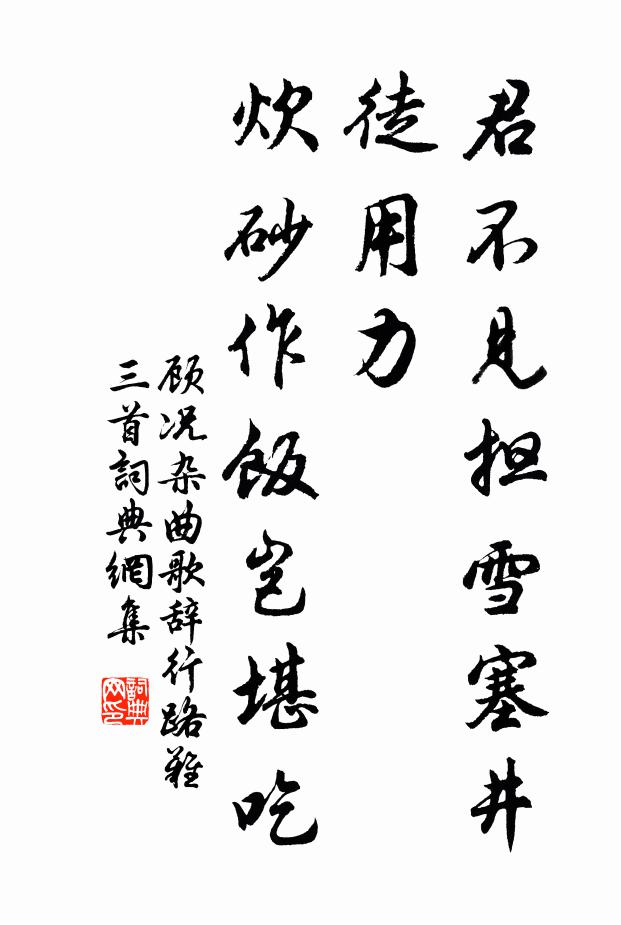 君不见担雪塞井
徒用力
炊砂作飯岂堪吃
顾况杂曲歌辞行路難
三首詞典網集
詞典
网印